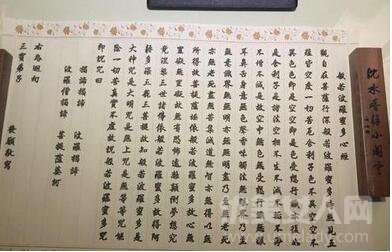 般若波羅蜜多心經
觀自在菩薩行深般若波羅蜜多時照見五
蘊皆空度一切苦厄舍利子色不異空空不
異色色即是空空即是色受想行識亦復如
是舍利子是諸法空相不生不滅不垢不淨
不增不減是故空中無色無受想行識無眼
耳鼻舌身意無色聲香味觸法無眼界乃至
無意識界無無明亦無無明盡乃至無老死
亦無老死盡無苦集滅道無智亦無得以無
所得故菩提薩埵依般若波羅蜜多故心無
罣礙無罣礙故無有恐怖遠離顛倒夢想究
竟涅槃三世諸佛依般若波羅蜜多故得阿
耨多羅三藐三菩提故知般若波羅蜜多是
大神咒是大明咒是無上咒是無等等咒能
除一切苦真實不虛故說般若波羅蜜多咒
即說咒曰
揭諦揭諦 波羅揭諦
波羅僧揭諦 菩提薩婆訶
右為迴向
三寶弟子 發願敬寫